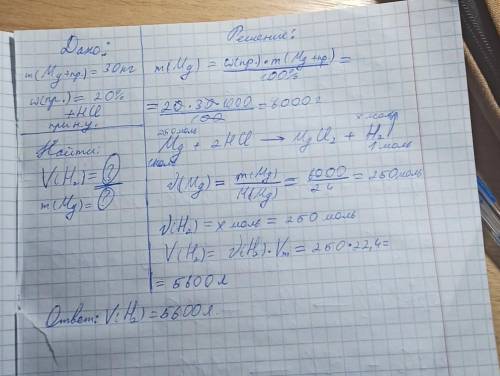 Дано:
m(Mg+пр.) = 30 кг
ω(пр.) = 20%
+HCl
Найти:
V(H₂) = ?
m(Mg) = ?
Решение:
m(Mg) = ω(пр.)·m(Mg+пр) / 100% =
= 20·30·1000 / 100 = 6000 г
250 моль x моль
Mg + 2HCl → MgCl₂ + H₂↑
1 моль 1 моль
ν(Mg) = m(Mg) / M(Mg) = 6000 / 24 = 250 моль
ν(H₂) = x моль = 250 моль
V(H₂) = ν(H₂)·Vm = 250·22,4 =
= 5600 л
Ответ: V(H₂) = 5600 л.